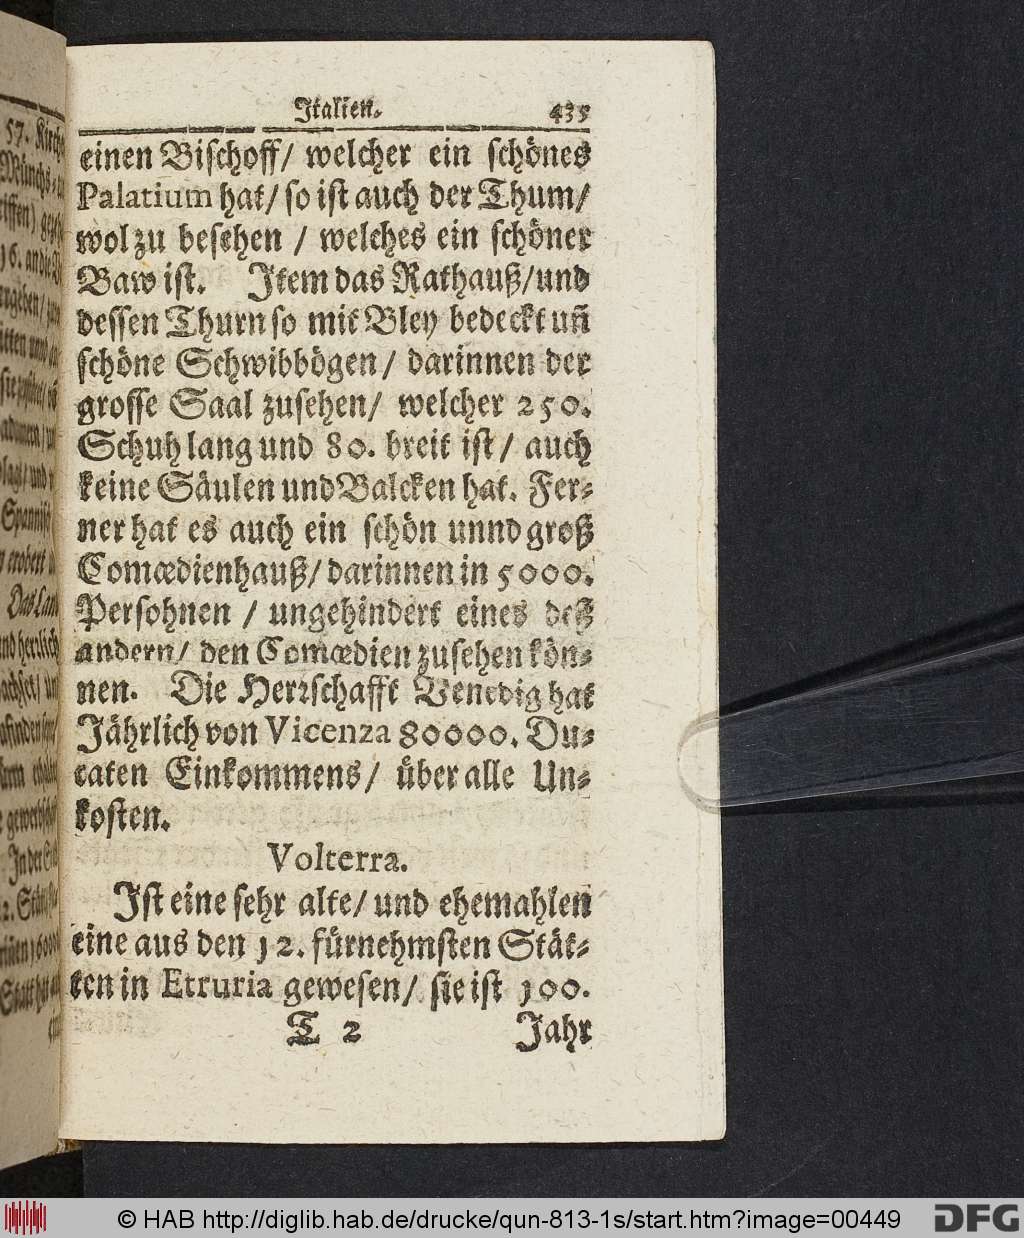 Italien. 435
einen Bischoff/ welcher ein schönes
Palatium hat/ so ist auch der Thum/
wol zu besehen / welches ein schöner
Baw ist. Item das Rathauß/und
dessen Thurn so mit Bley bedeckt uñ
schöne Schwibbögen/ darinnen der
grosse Saal zusehen/ welcher 250.
Schuh lang und 80. breit ist/ auch
keine Säulen und Balcken hat. Fer-
ner hat es auch ein schön unnd groß
Comœdienhauß/ darinnen in 5000.
Persohnen / ungehindert eines deß
andern/ den Comœdien zusehen kön-
nen. Die Herꝛschafft Venedig hat
Jährlich von Vicenza 80000. Du-
caten Einkommens/ über alle Un-
kosten.
Volterra.
Ist eine sehr alte/ und ehemahlen
eine aus den 12. fürnehmsten Stät-
ten in Etruria gewesen/ sie ist 100.
T 2 Jahr
© HAB http://diglib.hab.de/drucke/qun-813-1s/start.htm?image=00449
DFG